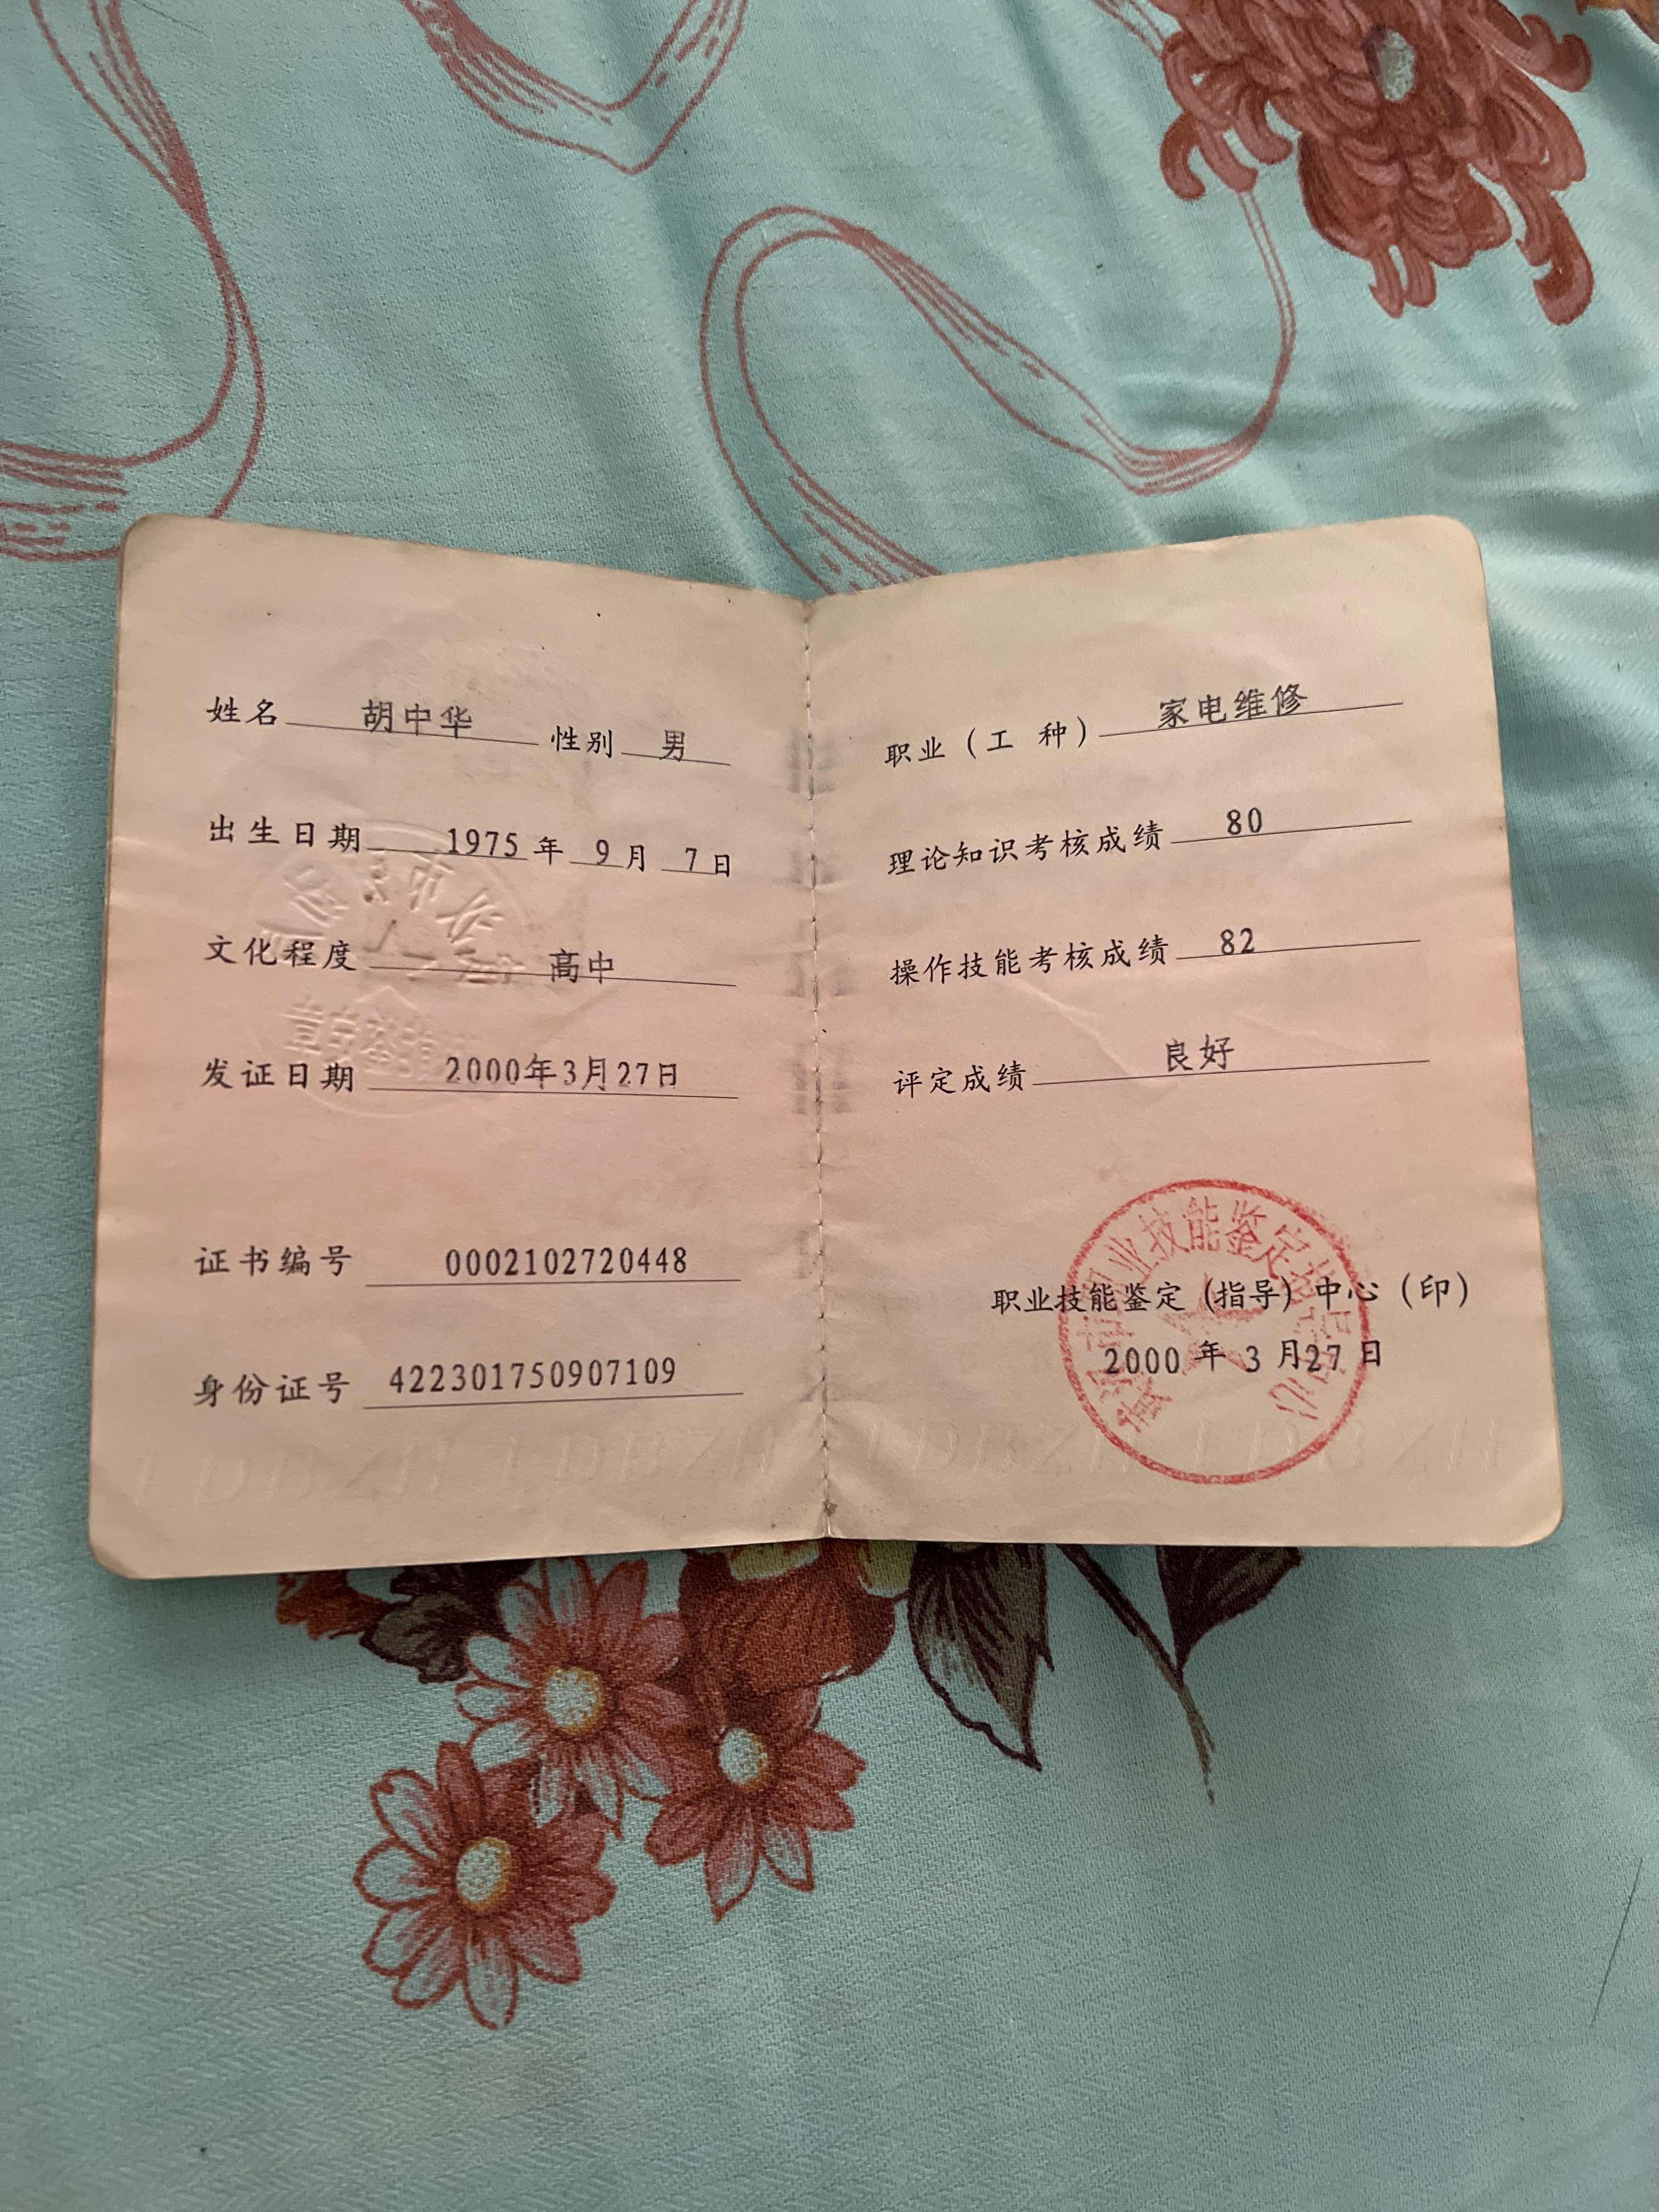 姓名 胡中华 性别 男
出生日期 1975 年 9 月 7 日
文化程度 高中
发证日期 2000年3月27日
证书编号 0002102720448
身份证号 422301750907109
职业（工 种） 家电维修
理论知识考核成绩 80
操作技能考核成绩 82
评定成绩 良好
职业技能鉴定（指导）中心（印）
2000 年 3 月 27 日